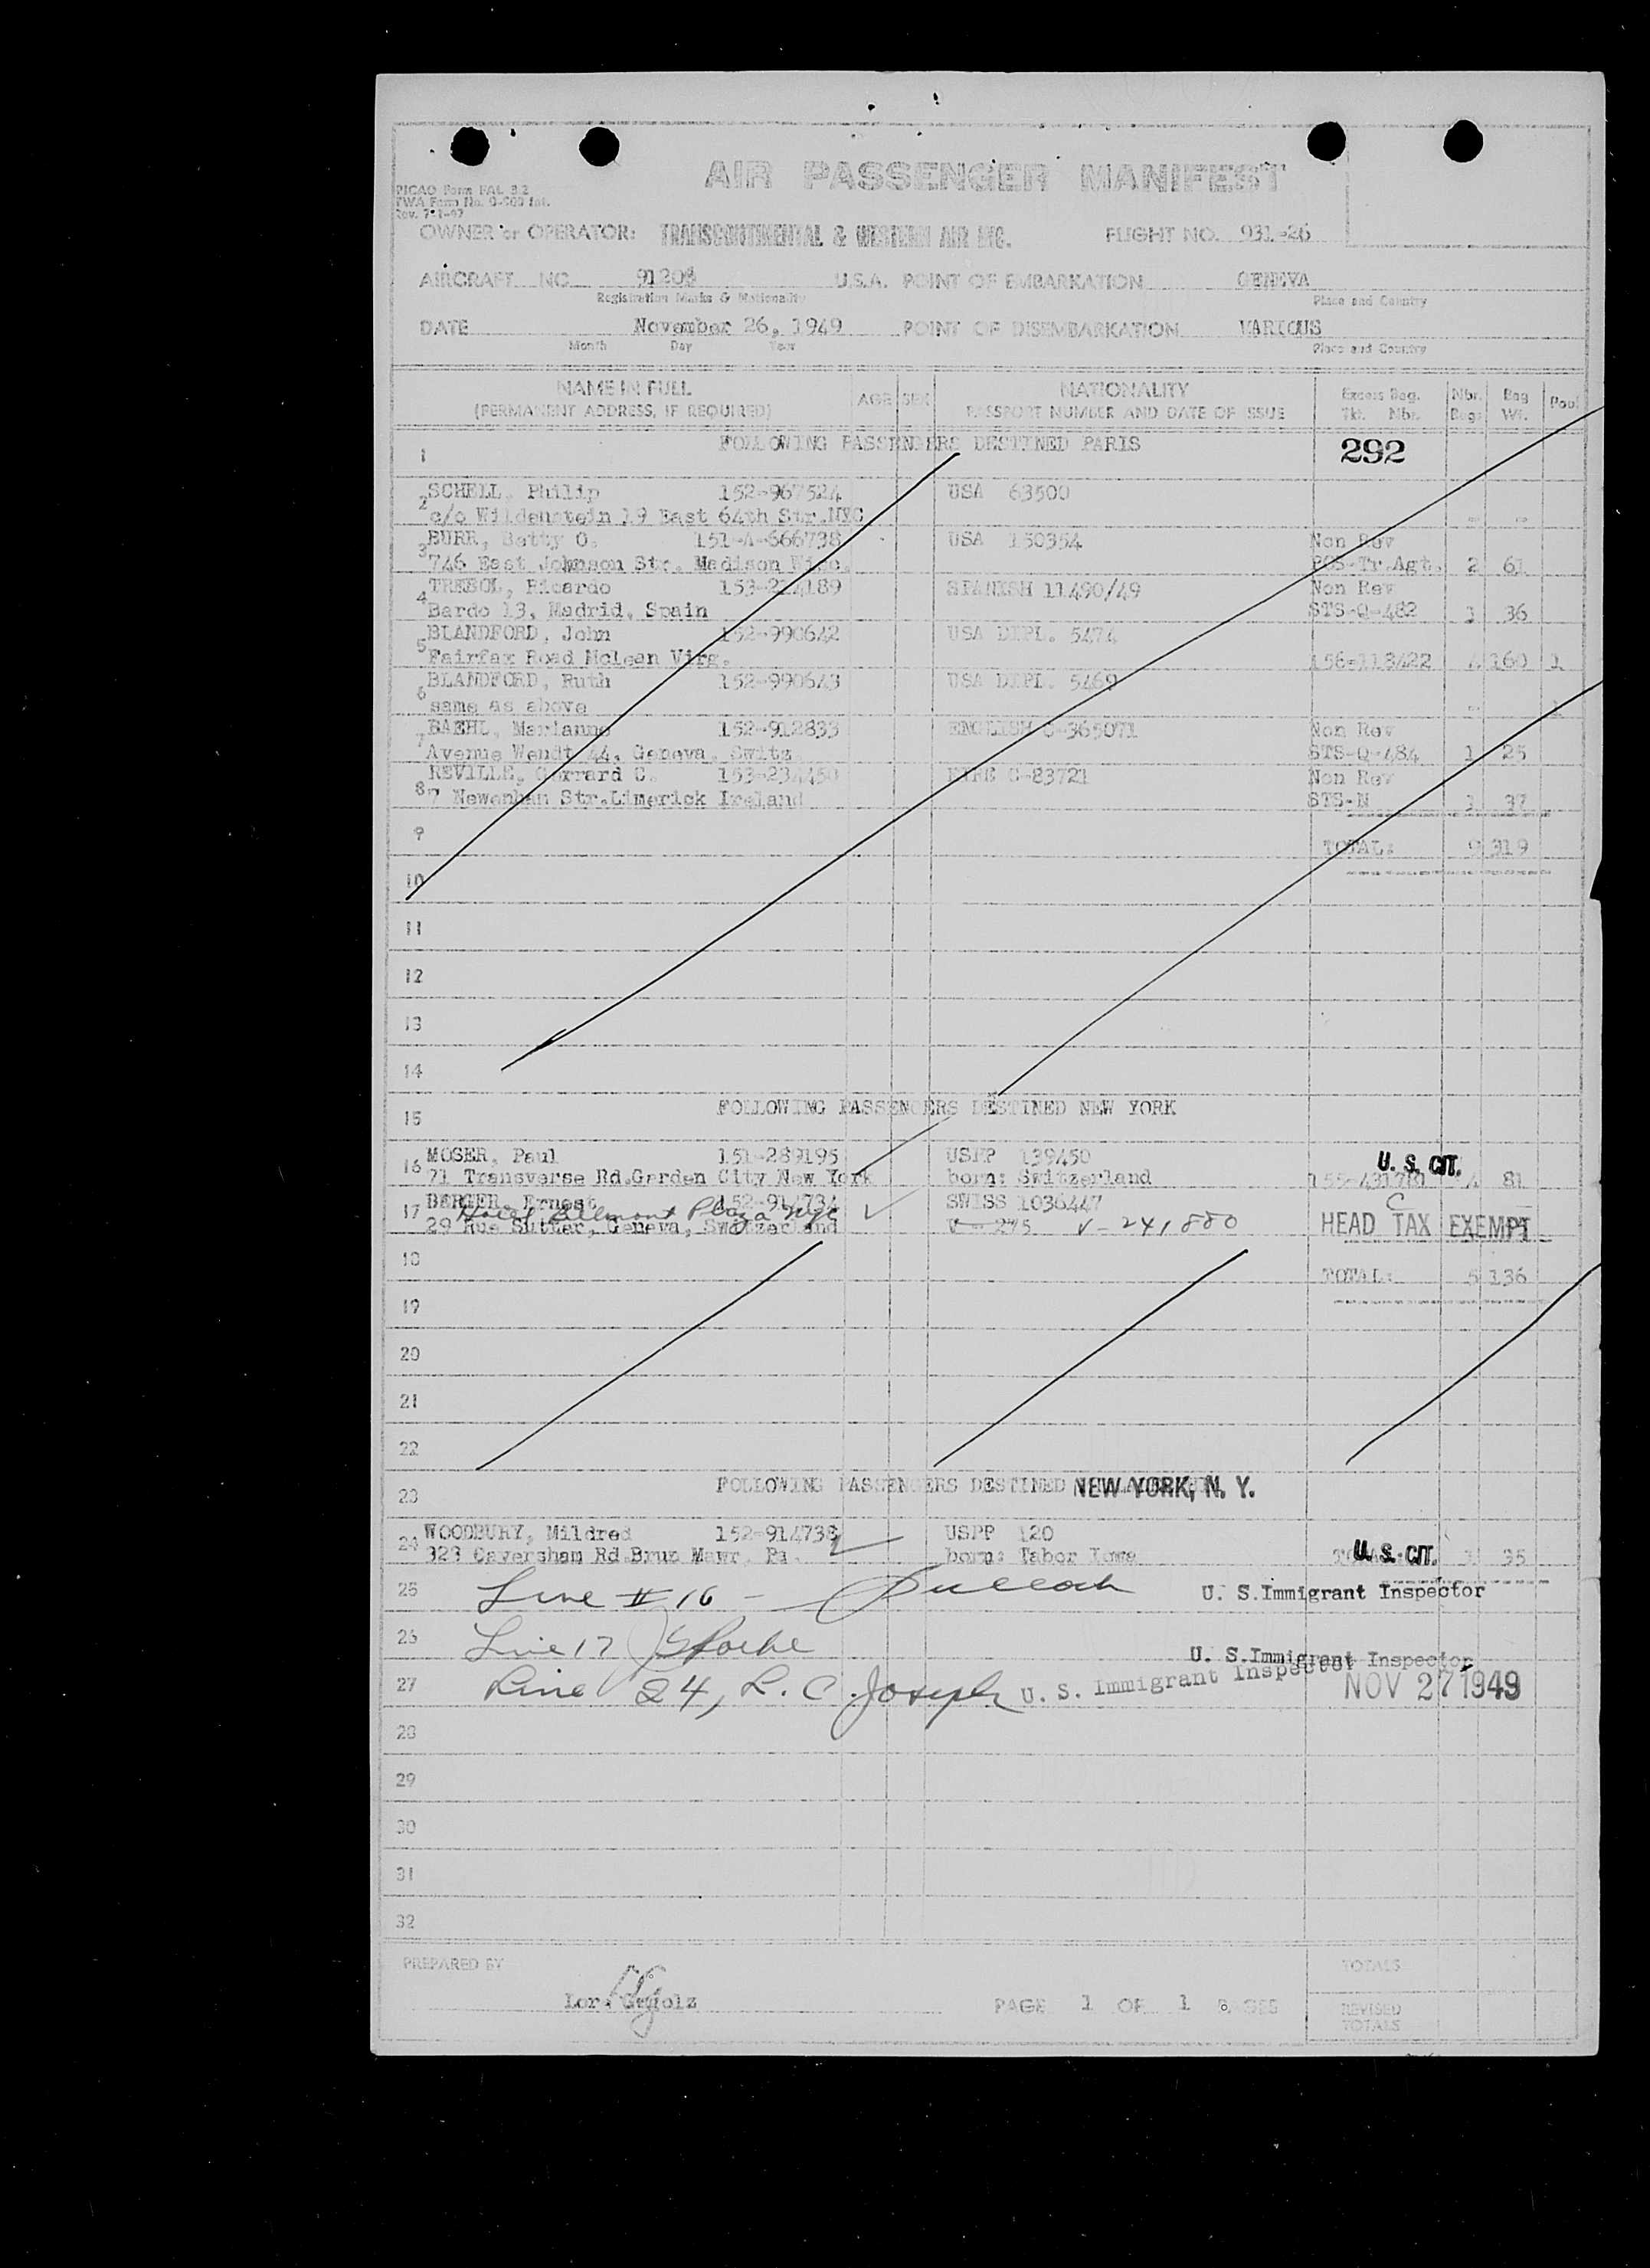 AIR PASSENGER MANIFEST
PICAO Form FAL 3.2
TWA Form No. 0-500 Int.
Rev. 7-1-47
OWNER or OPERATOR: TRANSCONTINENTAL & WESTERN AIR INC. FLIGHT NO. 931-26
AIRCRAFT NC 91208 U.S.A. POINT OF EMBARKATION GENEVA
Registration Marks & Nationality Place and Country
DATE November 26, 1949 POINT OF DISEMBARKATION VARIOUS
Month Day Year Place and Country
NAME IN FULL AGE SEX NATIONALITY Excess Bag. Nbr. Bag Pool
(PERMANENT ADDRESS, IF REQUIRED) PASSPORT NUMBER AND DATE OF ISSUE Tkt. Nbr. Bags Wt.
1 FOLLOWING PASSENGERS DESTINED PARIS 292
2 SCHELL, Philip 152-967524 USA 63500
c/o Wildenstein 19 East 64th Str.NYC
3 BURR, Betty O. 151-A-666738 USA 150354 Non Rev
746 East Johnson Str. Madison Wisc. POS-Tr.Agt. 2 61
4 TREBOL, Ricardo 153-214189 SPANISH 11490/49 Non Rev
Bardo 13, Madrid, Spain STS-Q-482 1 36
5 BLANDFORD, John 152-990642 USA DIPL. 5474
Fairfax Road Mclean Virg. 156-118422 4 160 1
6 BLANDFORD, Ruth 152-990643 USA DIPL. 5469
same as above 1
7 BAEHL, Marianne 152-912833 ENGLISH C-365071 Non Rev
Avenue Wendt 44, Geneva, Switz. STS-Q-484 1 25
8 REVILLE, Gerrard C. 153-234450 EIRE C-83721 Non Rev
7 Newenhan Str.Limerick Ireland STS-N 1 37
9 TOTAL: 9 319
10
11
12
13
14
15 FOLLOWING PASSENGERS DESTINED NEW YORK
16 MOSER, Paul 151-289195 USPP 139450 U. S. CIT.
71 Transverse Rd.Garden City New York born: Switzerland 4 81
17 BERGER, Ernest 152-914734 SWISS 1036447 C
Hotel Belmont Plaza NYC
29 Rue Sutter, Geneva, Switzerland V-275 V-241,880 HEAD TAX EXEMPT
18 TOTAL: 5 136
19
20
21
22
23 FOLLOWING PASSENGERS DESTINED NEW YORK, N. Y.
24 WOODBURY, Mildred 152-914738 USPP 120
323 Caversham Rd.Bryn Mawr, Pa. born: Tabor Iowa U. S. CIT. 1 35
25 Line # 16 - U. S.Immigrant Inspector
26 Line 17 U. S.Immigrant Inspector
27 Line 24, L. C. Joseph U. S. Immigrant Inspector NOV 27 1949
28
29
30
31
32
PREPARED BY TOTALS
PAGE 1 OF 1 PAGES REVISED TOTALS